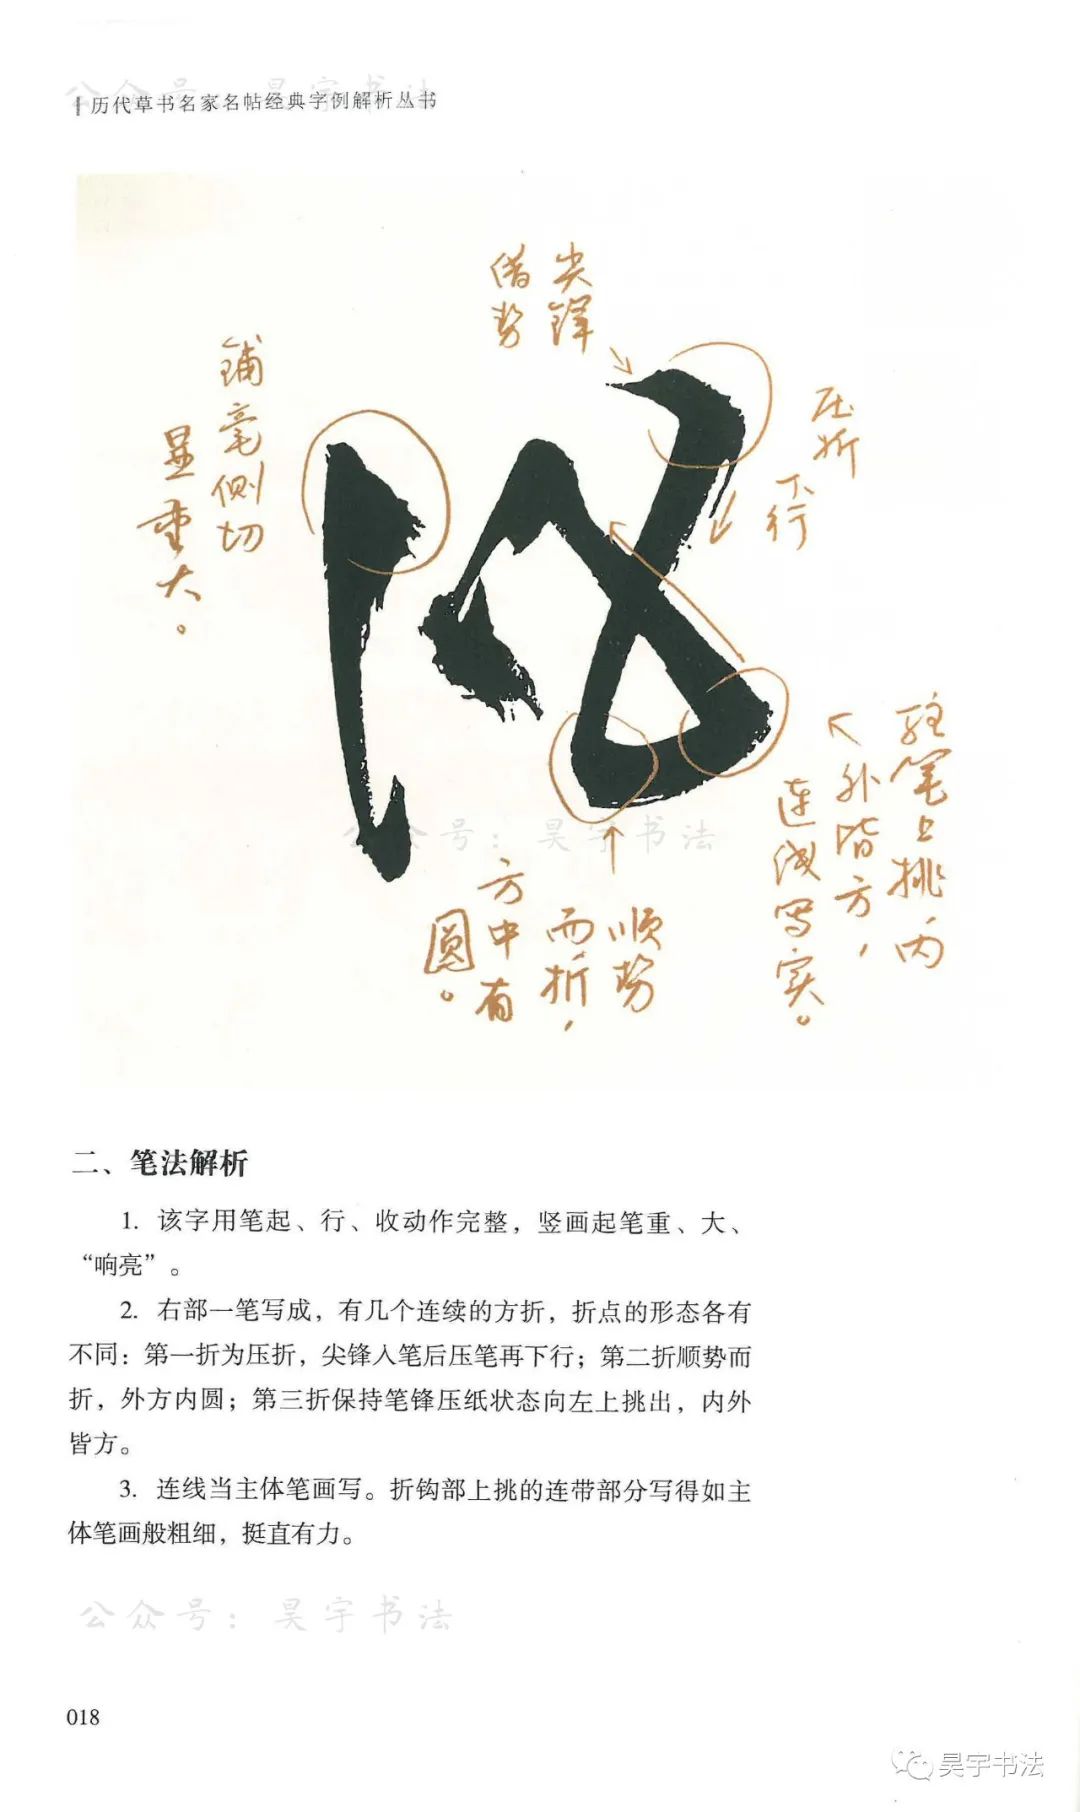 公众号：昊宇书法
历代草书名家名帖经典字例解析丛书
尖锋
借势
铺毫侧切
显重大。
压折
下行
驻笔上挑内
外皆方，
连线写实。
顺势
而折，
方中有
圆。
公众号：昊宇书法
二、笔法解析
1. 该字用笔起、行、收动作完整，竖画起笔重、大、
“响亮”。
2. 右部一笔写成，有几个连续的方折，折点的形态各有
不同：第一折为压折，尖锋入笔后压笔再下行；第二折顺势而
折，外方内圆；第三折保持笔锋压纸状态向左上挑出，内外
皆方。
3. 连线当主体笔画写。折钩部上挑的连带部分写得如主
体笔画般粗细，挺直有力。
公众号：昊宇书法
018
昊宇书法